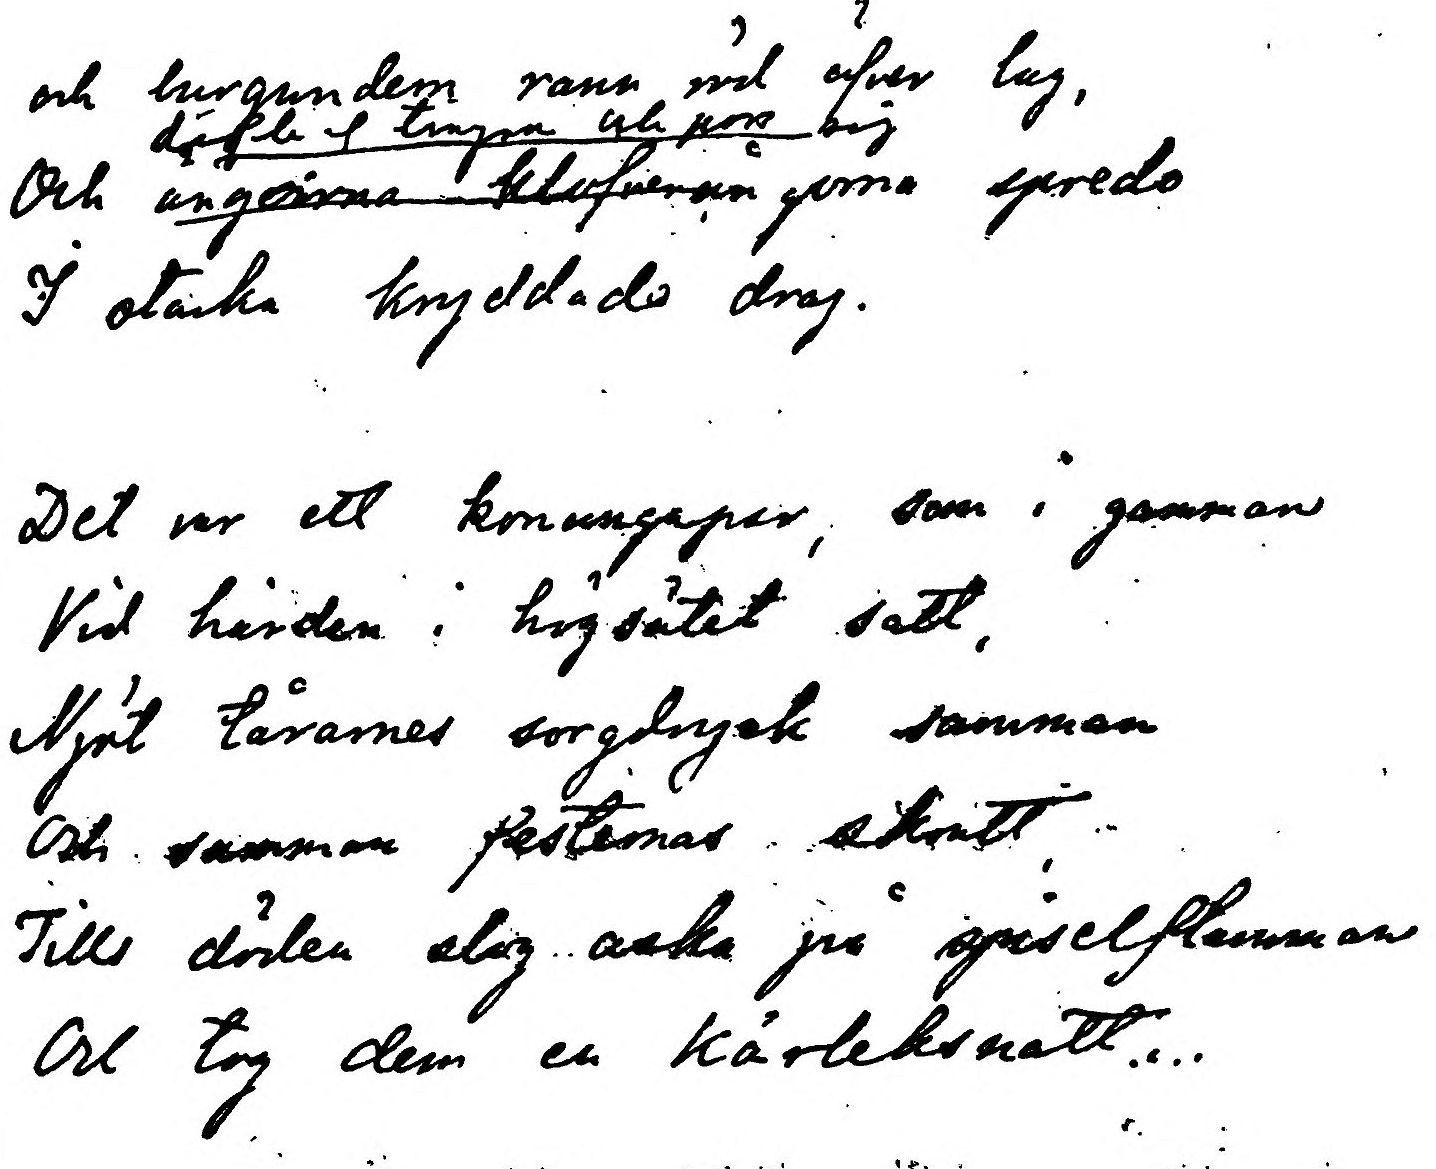 och burgundern rann röd öfver lag,
sig
Och ängorna spredo
I starka kryddade drag.
Det var ett konungapar, som i gamman
Vid härden i högsätet satt,
Njöt tårarnes sorgdryck samman
Och samman festernas skratt,
Tills döden slog aska på spiselflamman
Och tog dem en kärleksnatt....